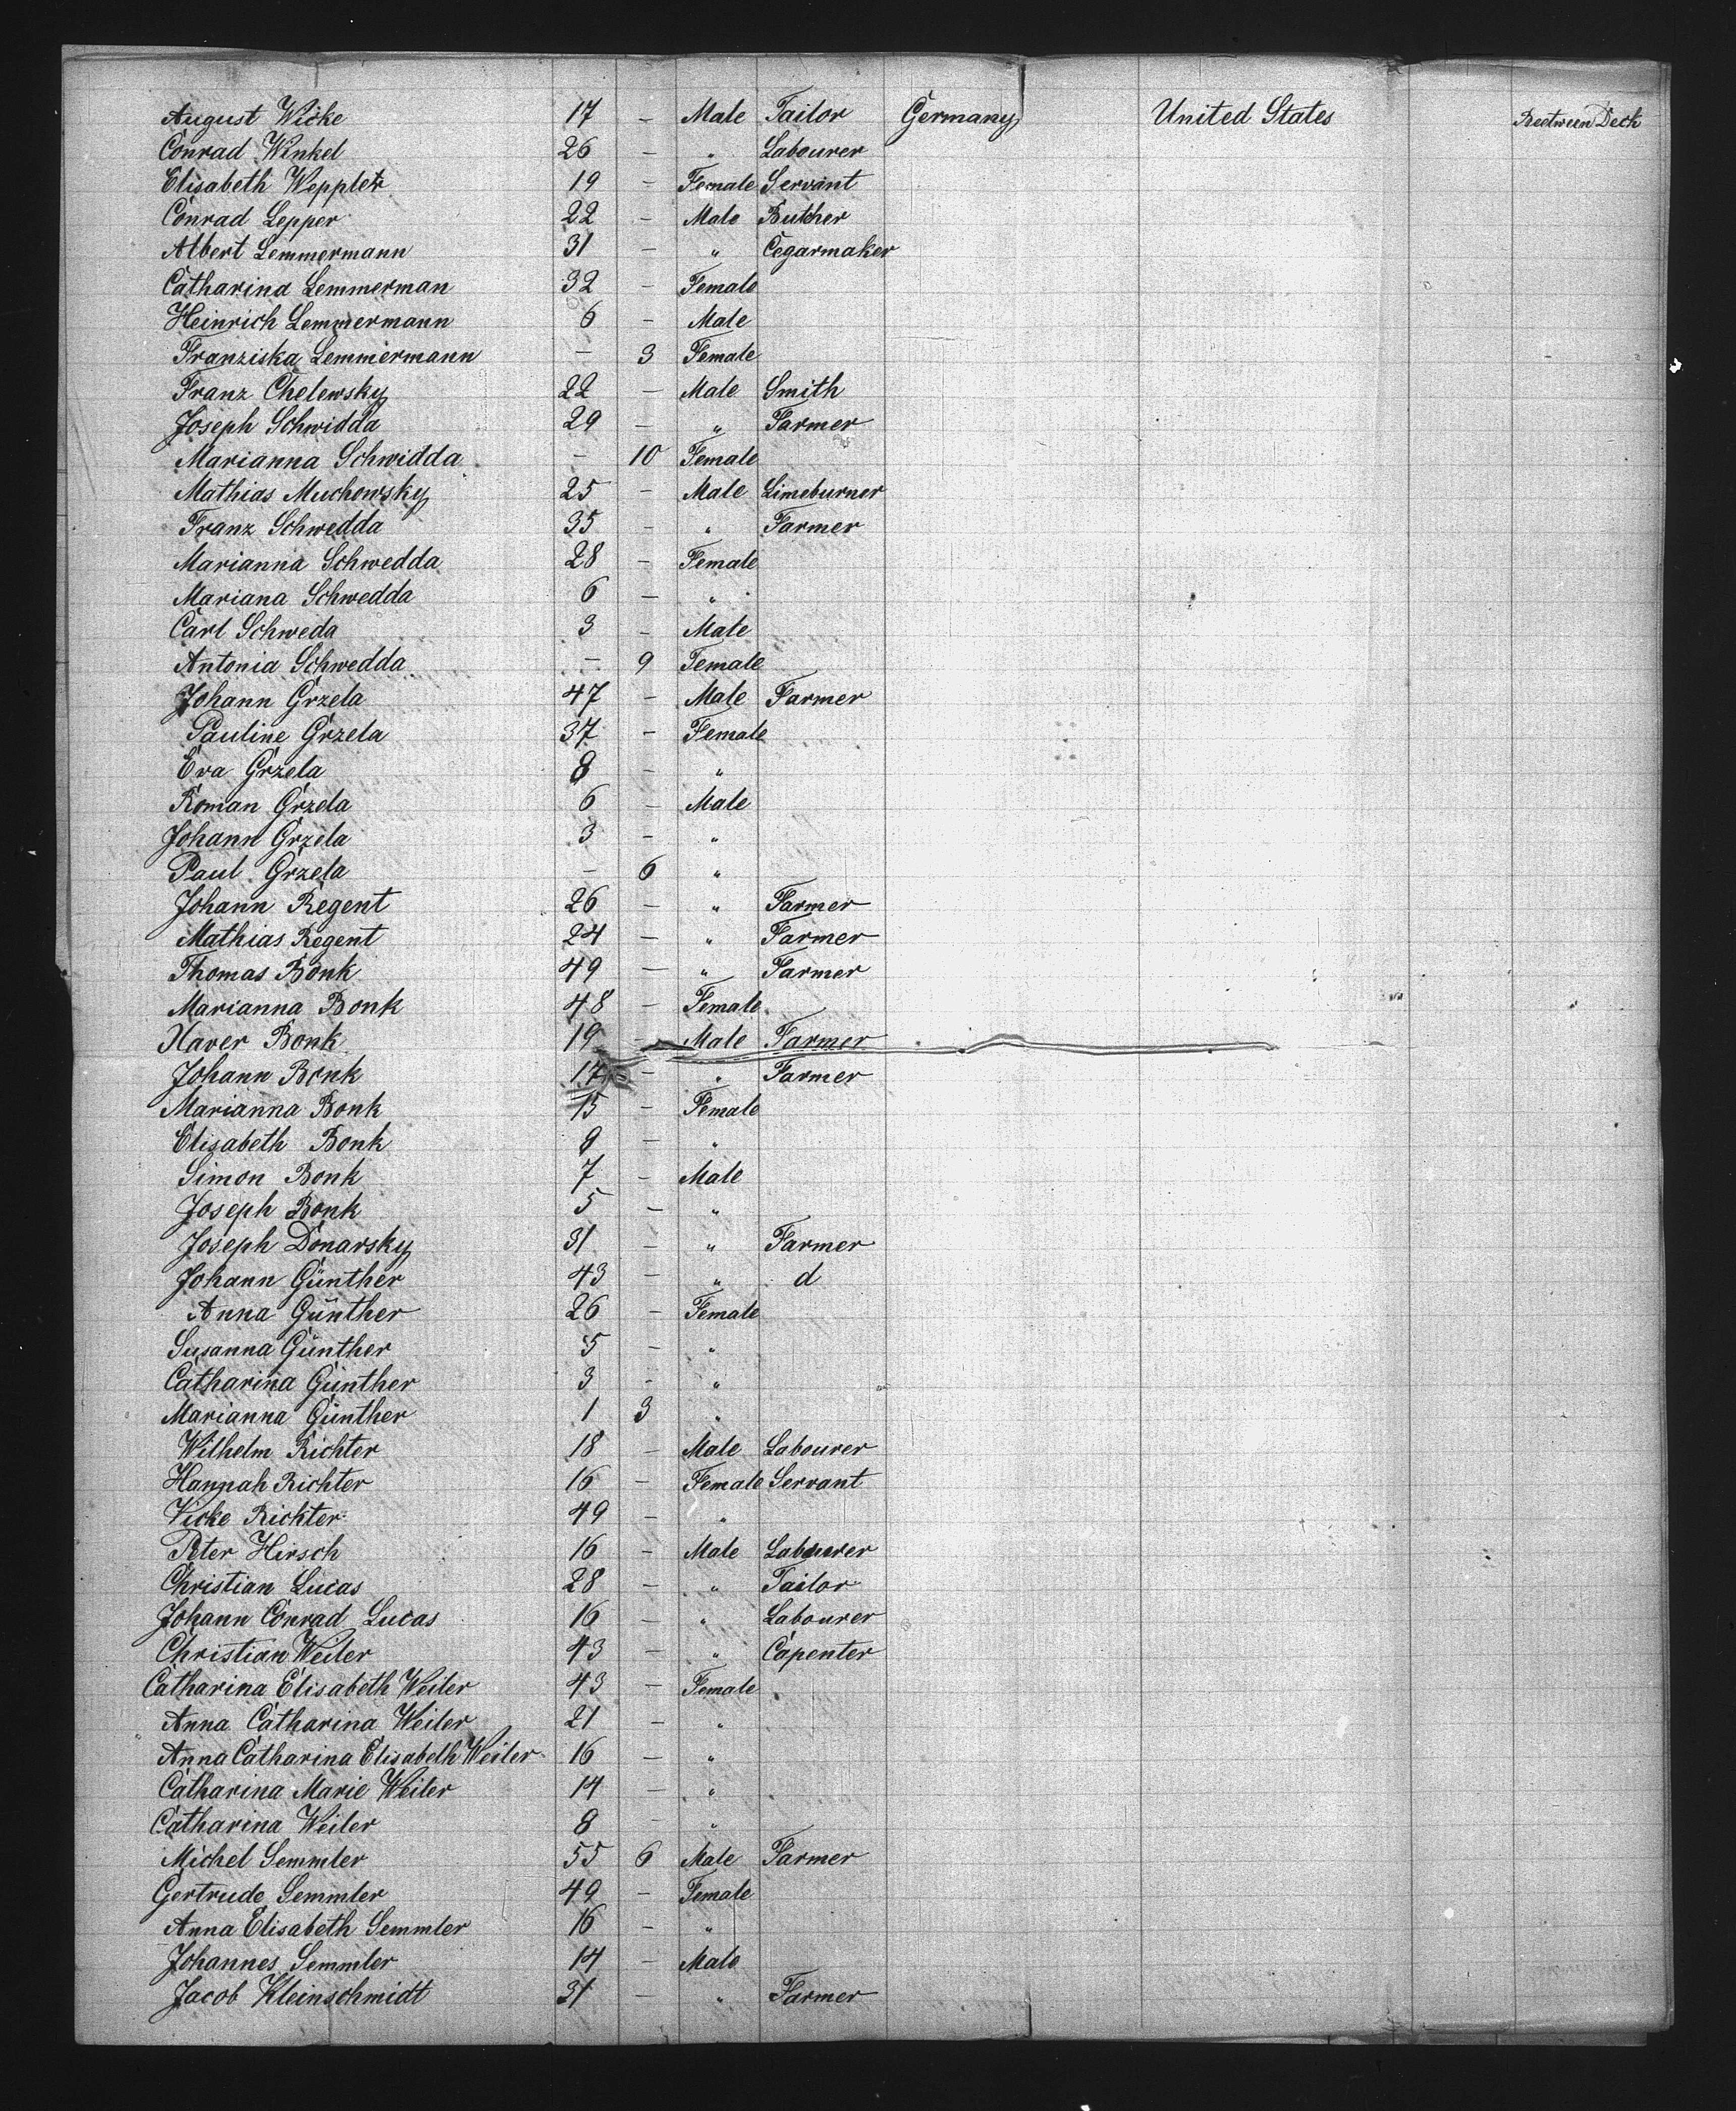 August Wicke 17 – Male Tailor Germany United States Beetween Deck
Conrad Winkel 26 – " Labourer
Elisabeth Weppler 19 – Female Servant
Conrad Lepper 22 – Male Butcher
Albert Lemmermann 31 – " Cegarmaker
Catharina Lemmerman 32 – Female
Heinrich Lemmermann 6 – Male
Franziska Lemmermann – 3 Female
Franz Chelewsky 22 – Male Smith
Joseph Schwidda 29 – " Farmer
Marianna Schwidda – 10 Female
Mathias Muchowsky 25 – Male Limeburner
Franz Schwedda 35 – " Farmer
Marianna Schwedda 28 – Female
Mariana Schwedda 6 – "
Carl Schweda 3 – Male
Antonia Schwedda – 9 Female
Johann Grzela 47 – Male Farmer
Pauline Grzela 37 – Female
Eva Grzela 8 – "
Roman Grzela 6 – Male
Johann Grzela 3 – "
Paul Grzela – 6 "
Johann Regent 26 – " Farmer
Mathias Regent 24 – " Farmer
Thomas Bonk 49 – " Farmer
Marianna Bonk 48 – Female
Xaver Bonk 19 – Male Farmer
Johann Bonk 17 – " Farmer
Marianna Bonk 15 – Female
Elisabeth Bonk 9 – "
Simon Bonk 7 – Male
Joseph Bonk 5 – "
Joseph Donarsky 31 – " Farmer
Johann Günther 43 – " d
Anna Günther 26 – Female
Susanna Günther 5 – "
Catharina Günther 3 – "
Marianna Günther 1 3 "
Wilhelm Richter 18 – Male Labourer
Hannah Richter 16 – Female Servant
Vicke Richter 49 – "
Peter Hirsch 16 – Male Labourer
Christian Lucas 28 – " Tailor
Johann Conrad Lucas 16 – " Labourer
Christian Weiler 43 – " Capenter
Catharina Elisabeth Weiler 43 – Female
Anna Catharina Weiler 21 – "
Anna Catharina Elisabeth Weiler 16 – "
Catharina Marie Weiler 14 – "
Catharina Weiler 8 – "
Michel Semmler 55 6 Male Farmer
Gertrude Semmler 49 – Female
Anna Elisabeth Semmler 16 – "
Johannes Semmler 14 – Male
Jacob Kleinschmidt 31 – " Farmer